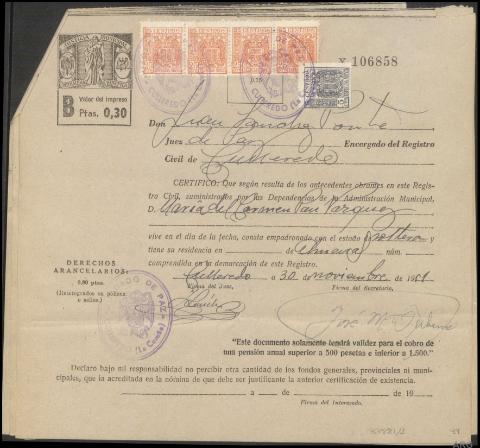 JUSTICIA MUNICIPAL
B Valor del impreso
Ptas. 0,30
106858
Don Juan Sánchez
Juez de Paz Encargado del Registro
Civil de Culleredo
CERTIFICO: Que según resulta de los antecedentes obrantes en este Regis-
tro Civil, suministrados por las Dependencias de la Administración Municipal,
D. María del Carmen Pan Vázquez
vive en el día de la fecha, consta empadronado con el estado Soltera y
tiene su residencia en de Almeiras núm.
comprendido en la demarcación de este Registro.
DERECHOS
ARANCELARIOS:
0,80 ptas.
(Reintegrados en pólizas
y sellos.)
Culleredo a 30 de noviembre de 19
Firma del Juez, Firma del Secretario,
JUZGADO DE PAZ
CULLEREDO (La Coruña)
José M.
"Este documento solamente tendrá validez para el cobro de
una pensión anual superior a 500 pesetas e inferior a 1.500."
Declaro bajo mi responsabilidad no percibir otra cantidad de los fondos generales, provinciales ni muni-
cipales, que la acreditada en la nómina de que debe ser justificante la anterior certificación de existencia.
a de de 19
Firma del Interesado.